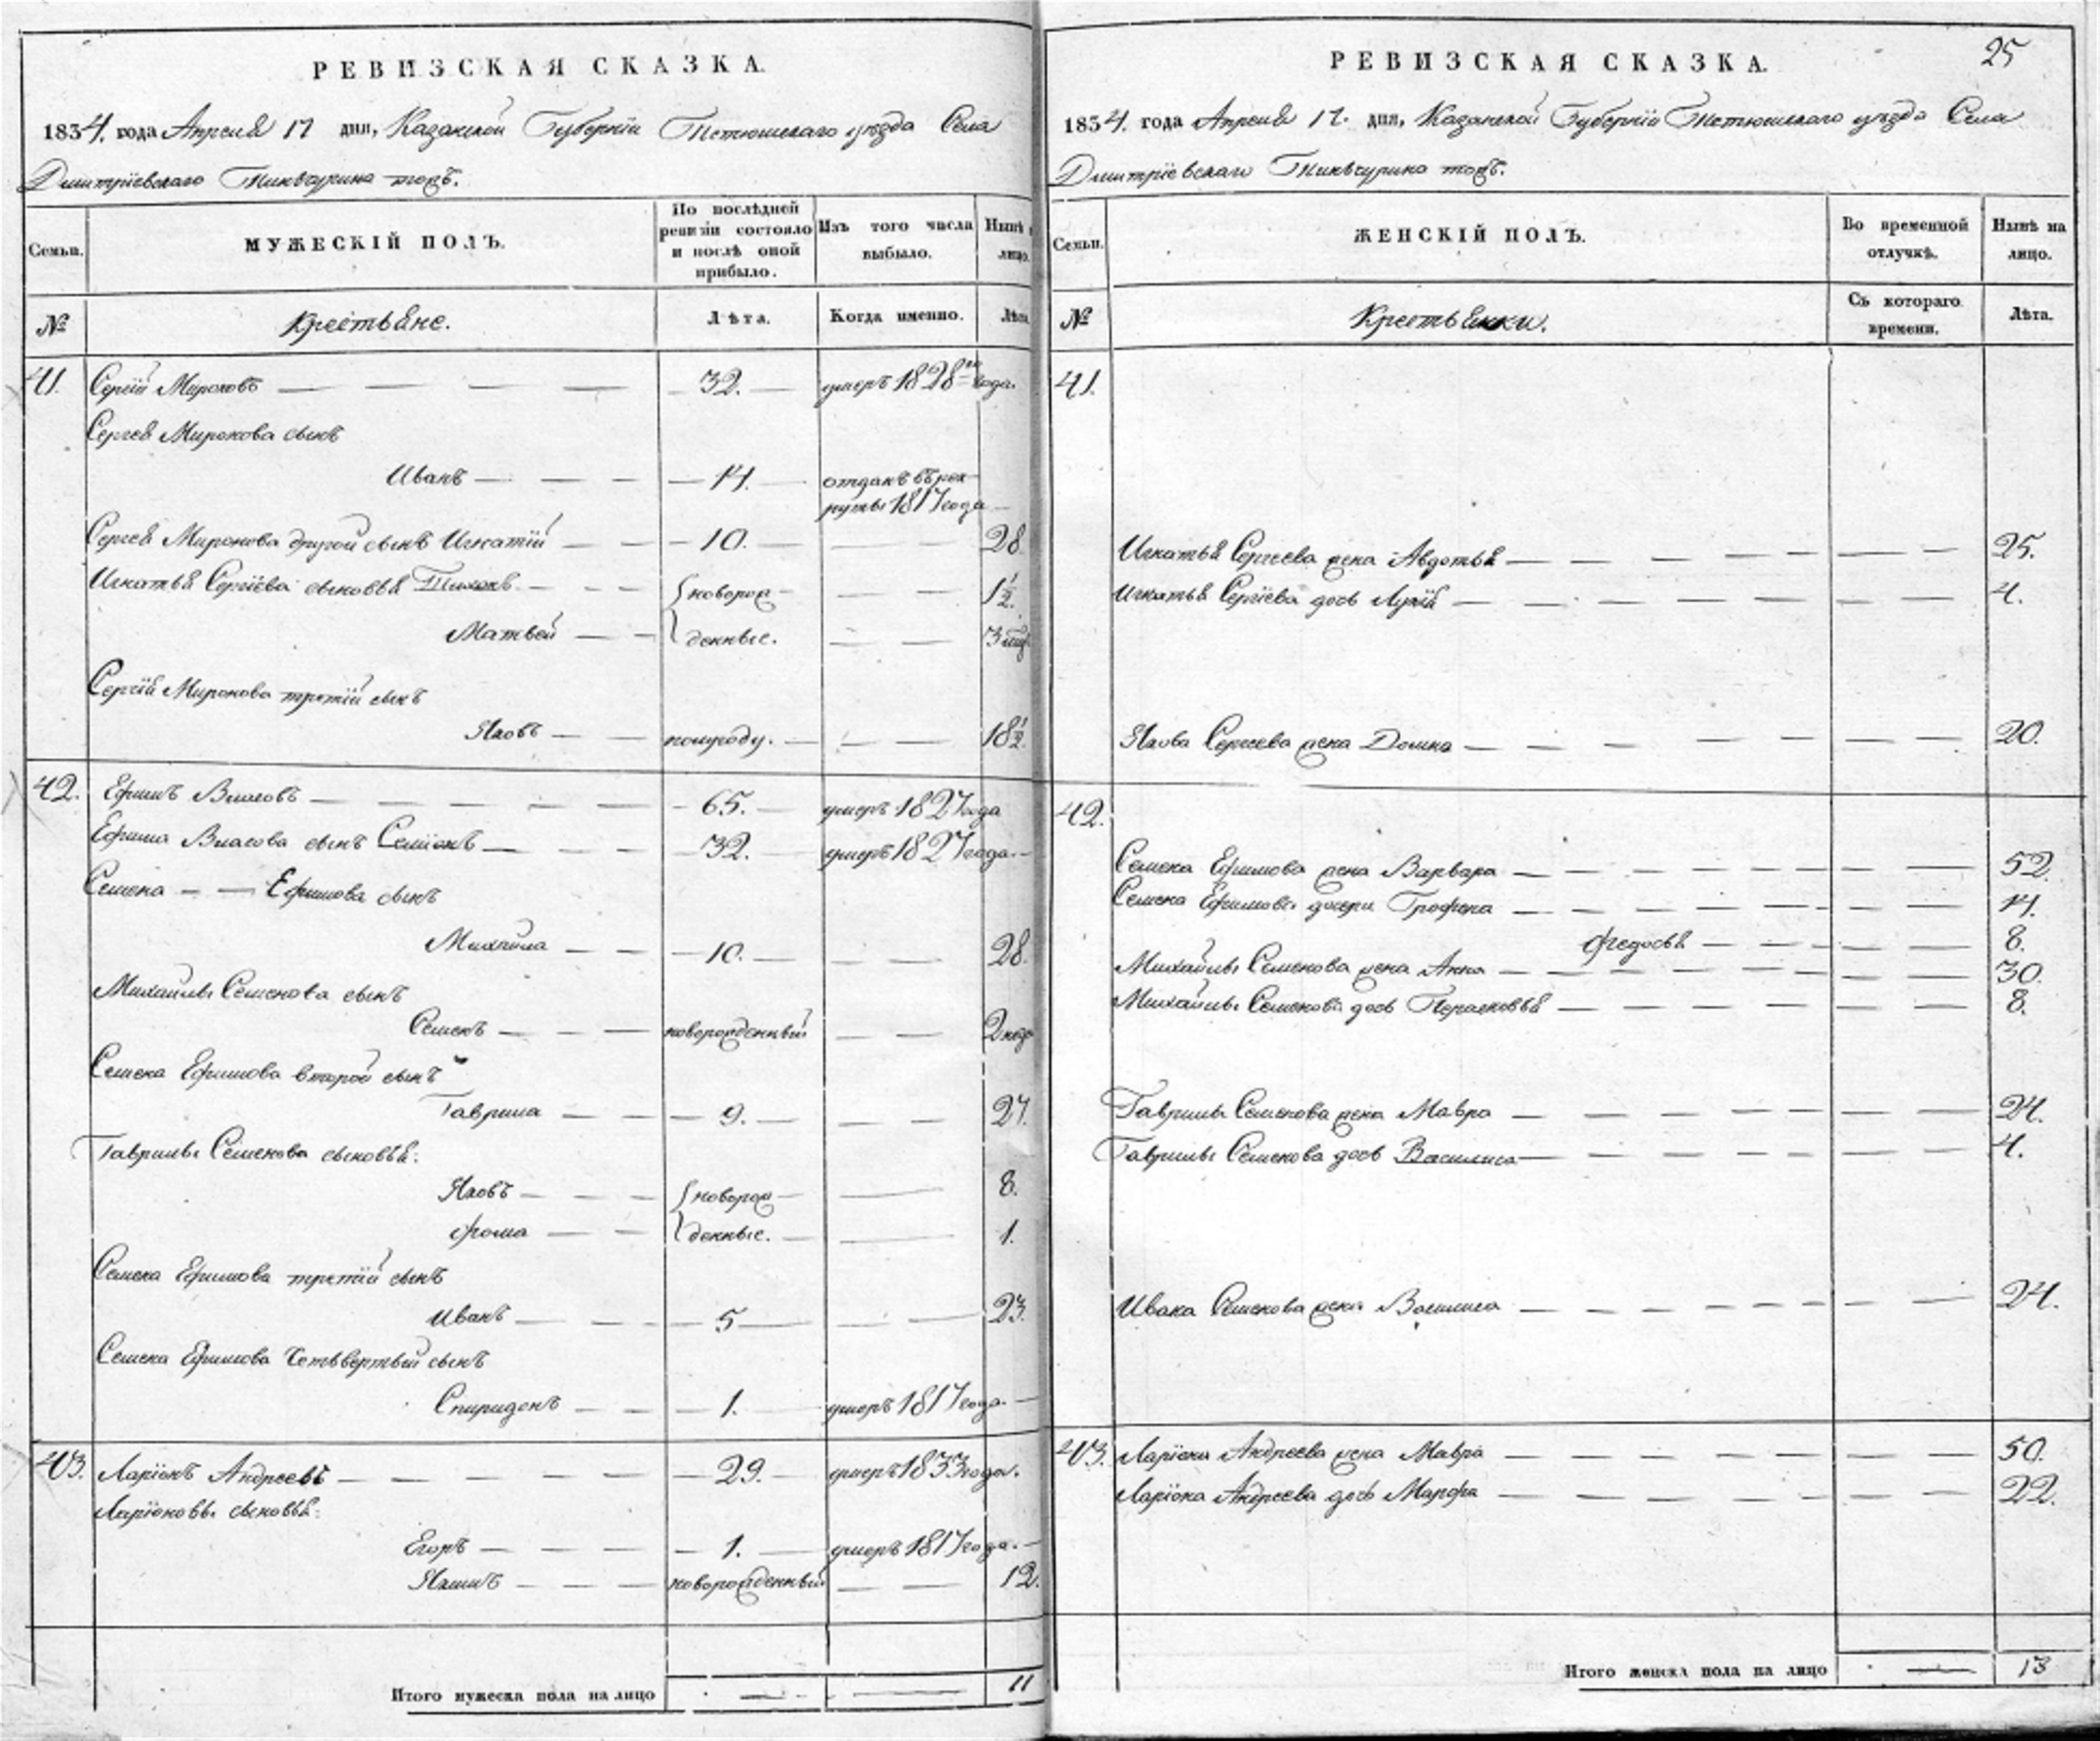 РЕВИЗСКАЯ СКАЗКА.
1834. года Апреля 17 дня, Казанской Губернiи Тетюшскаго уѣзда Села
Дмитрiевскаго Тинвчурина тожъ.
Семьи.
МУЖЕСКІЙ ПОЛЪ.
По послѣдней ревизіи состояло и послѣ оной прибыло.
Изъ того числа выбыло.
Нынѣ на лицо.
№
Крестьяне.
Лѣта.
Когда именно.
Лѣта.
41. Сергiй Мироновъ 32. умеръ 1828го года.
Сергея Миронова сынъ
Иванъ 14. отданъ въ рек
руты 1817 года
Сергея Миронова другой сынъ Игнатiй 10. 28
Игнатья Сергiева сыновья Тихонъ новорож 1 1/2.
Матвей денные. 3 мѣс
Сергiя Миронова третiй сынъ
Яковъ полугоду. 18 1/2.
42. Ефимъ Власовъ 65. умеръ 1827 года
Ефима Власова сынъ Семiонъ 32. умеръ 1827 года.
Семена Ефимова сынъ
Михайла 10. 28.
Михайлы Семенова сынъ
Семенъ новорожденный 2 нед
Семена Ефимова второй сынъ
Гаврила 9. 27.
Гаврилы Семенова сыновья:
Яковъ новорож 8.
Фома денные. 1.
Семена Ефимова третiй сынъ
Иванъ 5 23.
Семена Ефимова Четвертый сынъ
Спиридонъ 1. умеръ 1817 года.
43. Ларiонъ Андреевъ 29. умеръ 1833 года.
Ларiоновы сыновья:
Егоръ 1. умеръ 1817 года.
Якимъ новорожденный 12.
Итого мужеска пола на лицо 11
25
РЕВИЗСКАЯ СКАЗКА.
1834. года Апреля 17. дня, Казанской Губернiи Тетюшскаго уѣзда Села
Дмитрiевскаго Тинвчурина тожъ.
Семьи.
ЖЕНСКІЙ ПОЛЪ.
Во временной отлучкѣ.
Нынѣ на лицо.
№
Крестьянки.
Съ котораго времени.
Лѣта.
41.
Игнатья Сергеева жена Авдотья 25.
Игнатья Сергiева дочь Лукiя 4.
Якова Сергеева жена Домна 20.
42.
Семена Ефимова жена Варвара 52.
Семена Ефимова дочери Грофена 14.
Федосья 8.
Михайлы Семенова жена Анна 30.
Михайлы Семенова дочь Парасковья 8.
Гаврилы Семенова жена Мавра 24.
Гаврилы Семенова дочь Василиса 4.
Ивана Семенова жена Василиса 24.
43. Ларiона Андреева жена Мавра 50.
Ларiона Андреева дочь Марфа 22.
Итого женска пола на лицо 13